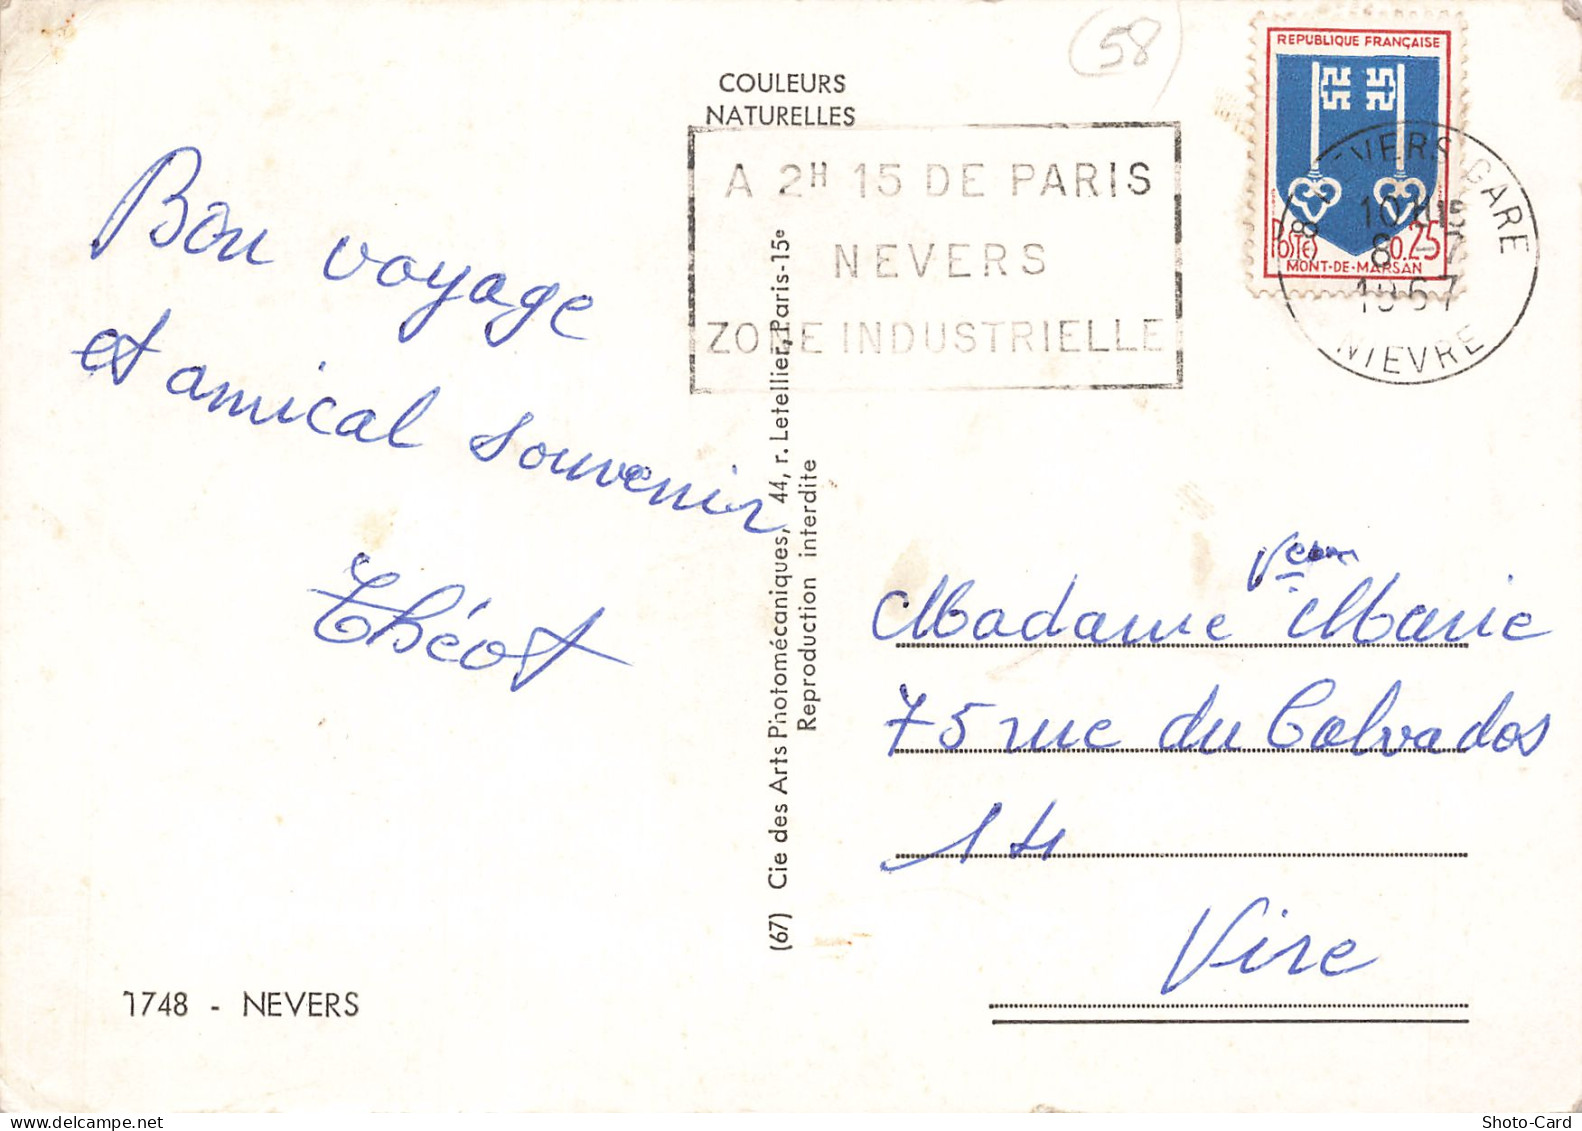 (58)
COULEURS
NATURELLES
REPUBLIQUE FRANÇAISE
POSTES 0.25
MONT-DE-MARSAN
NEVERS GARE
58
10H15
8-7
1967
NIEVRE
A 2H 15 DE PARIS
NEVERS
ZONE INDUSTRIELLE
Bon voyage
et amical souvenir
Théot
(67) Cie des Arts Photomécaniques, 44, r. Letellier, Paris-15e
Reproduction interdite
Madame Marie
75 rue du Calvados
14
Vire
1748 - NEVERS
Shoto-Card
www.delcampe.net